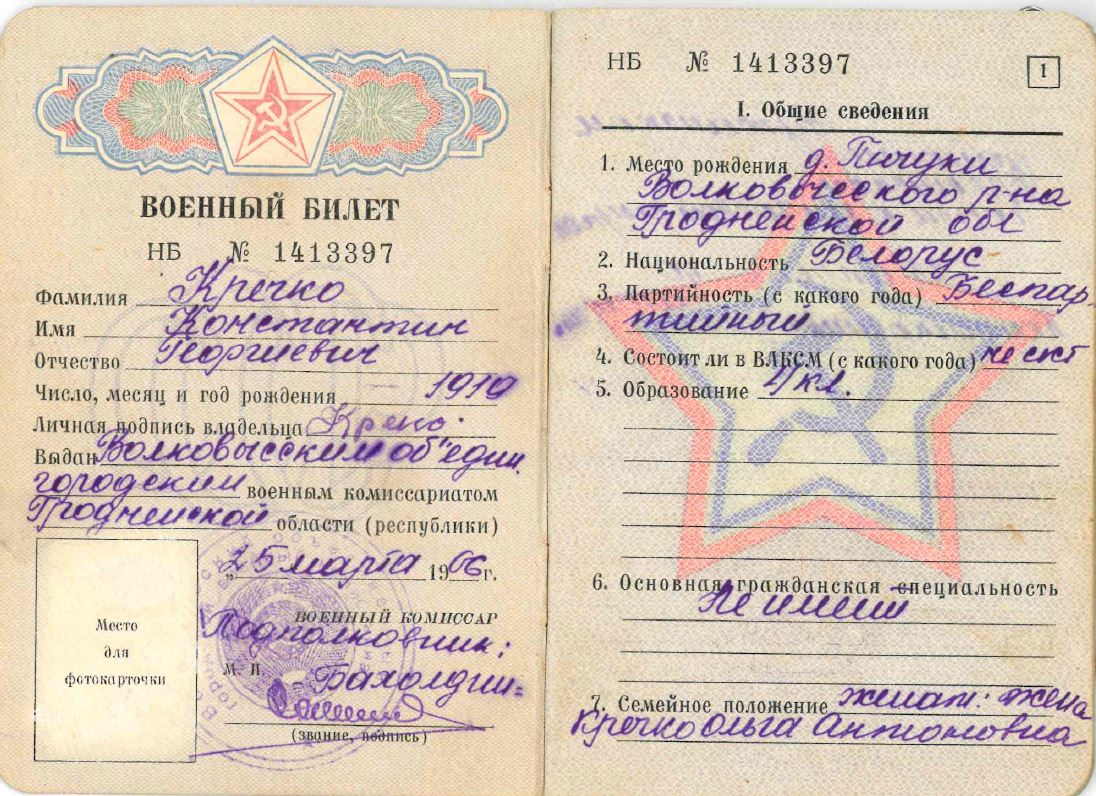 ВОЕННЫЙ БИЛЕТ
НБ № 1413397
Фамилия Кречко
Имя Константин
Отчество Георгиевич
Число, месяц и год рождения 1919
Личная подпись владельца
Выдан Волковысским об"един.
городским военным комиссариатом
Гродненской области (республики)
„25 марта 1966г.
ВОЕННЫЙ КОМИССАР
Подполковник:
М. П.
(звание, подпись)
Место
для
фотокарточки
НБ № 1413397
1
I. Общие сведения
1. Место рождения д.
Волковысского р-на
Гродненской обл
2. Национальность Белорус
3. Партийность (с какого года) Беспар
тийный
4. Состоит ли в ВЛКСМ (с какого года)
5. Образование кл.
6. Основная гражданская специальность
Не имеет
7. Семейное положение женат: жена
Кречко Ольга Антоновна